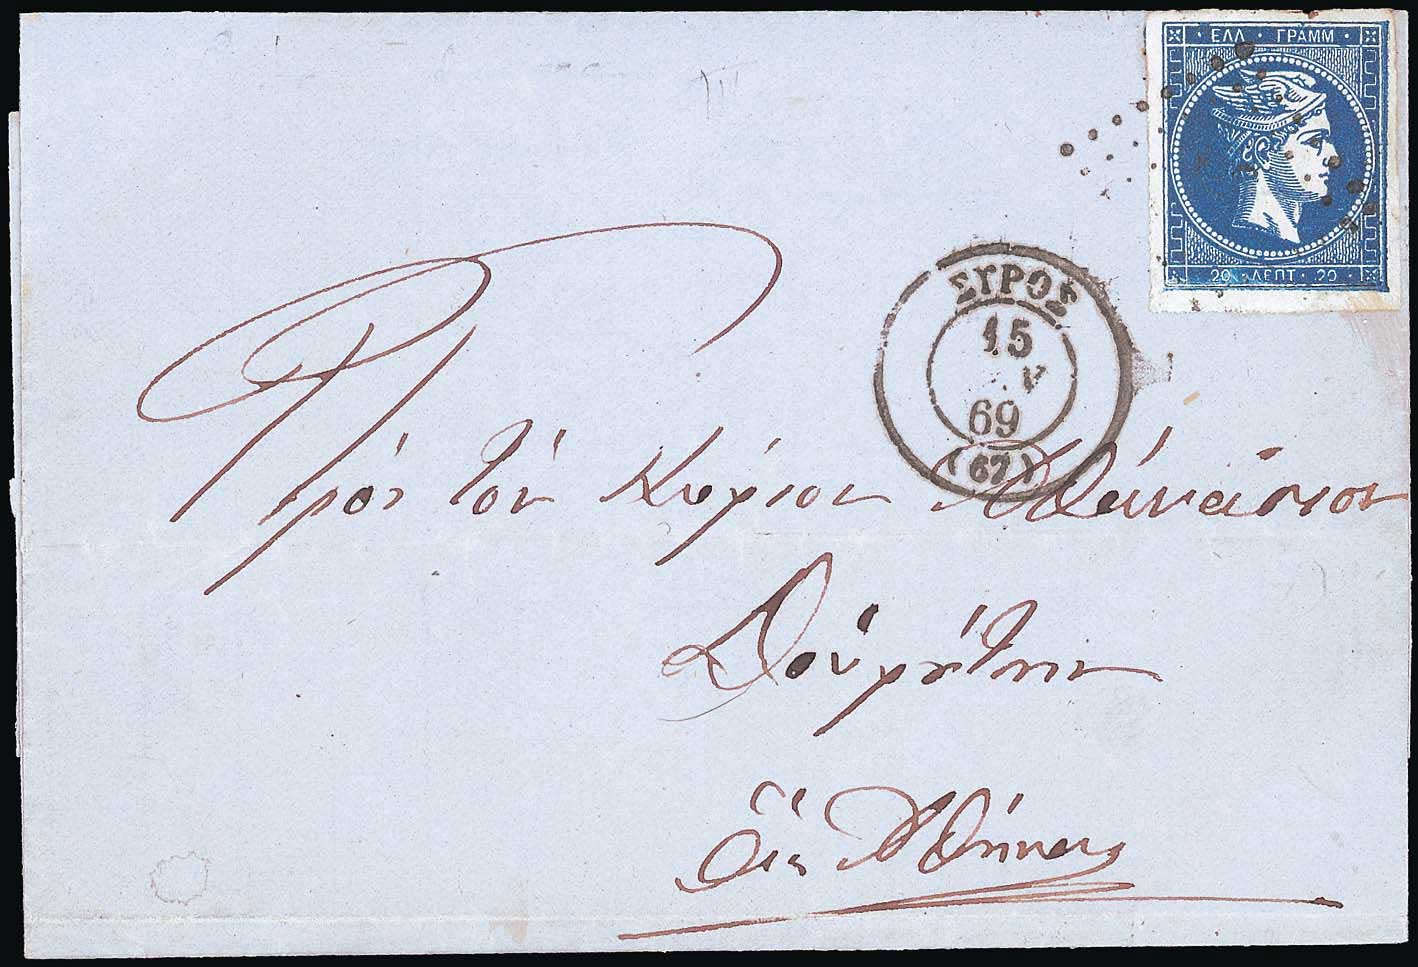 ΕΛΛ · ΓΡΑΜΜ ·
20 ΛΕΠΤ · 20
ΣΥΡΟΣ
15
69
(67)
Πρὸς τὸν Κύριον Ἀθανάσιον
Δουρούτην
Εἰς Ἀθήνας